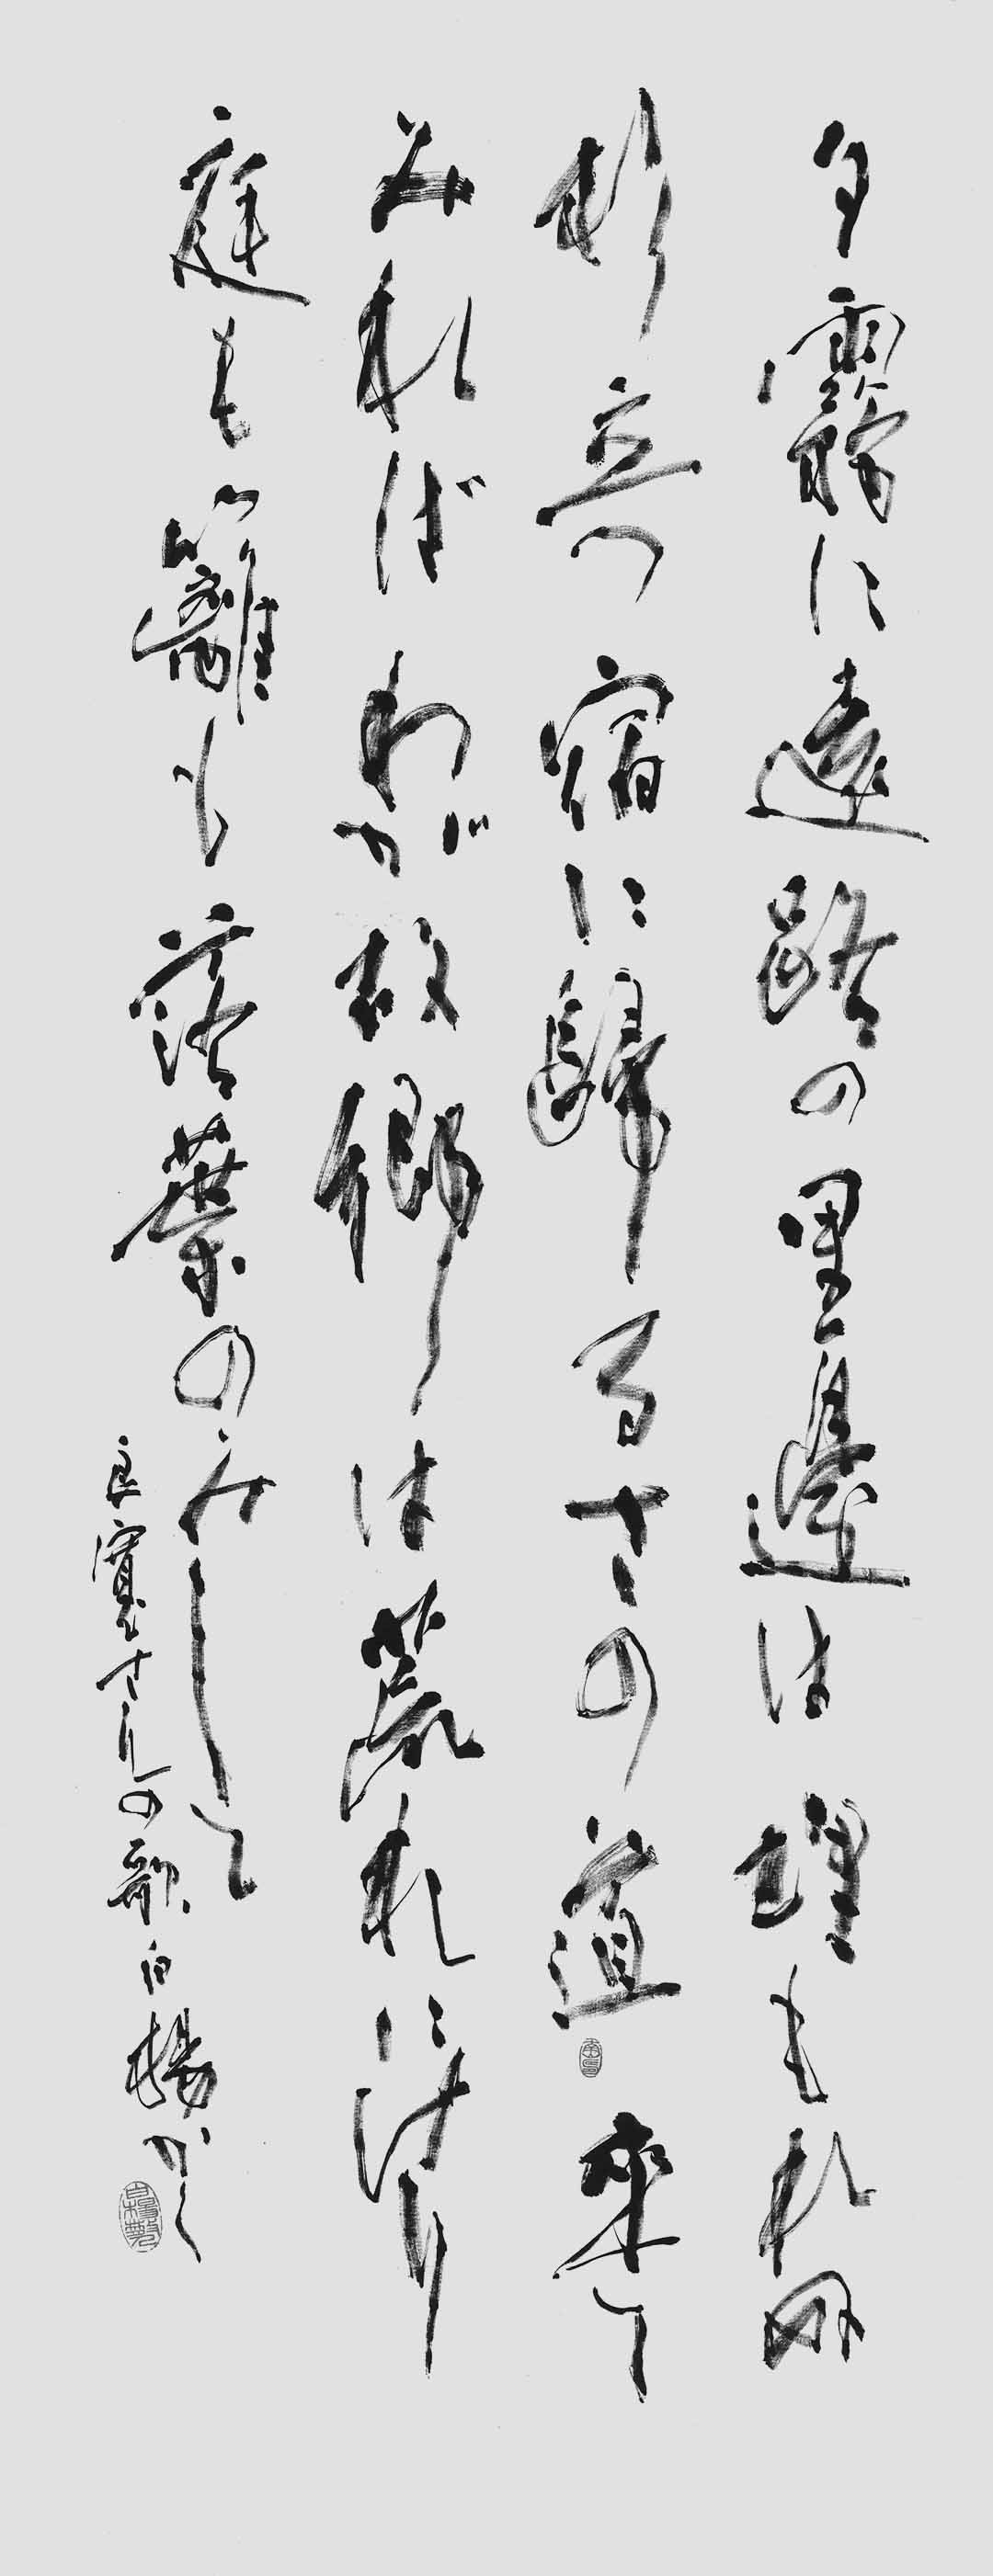 夕霧に遠路の里邊は埋もれぬ
杉立つ宿に歸るさの道 来て
みればわが故郷は荒れにけり
庭も籬も落葉のみして
良寛さんの歌 白楊かく